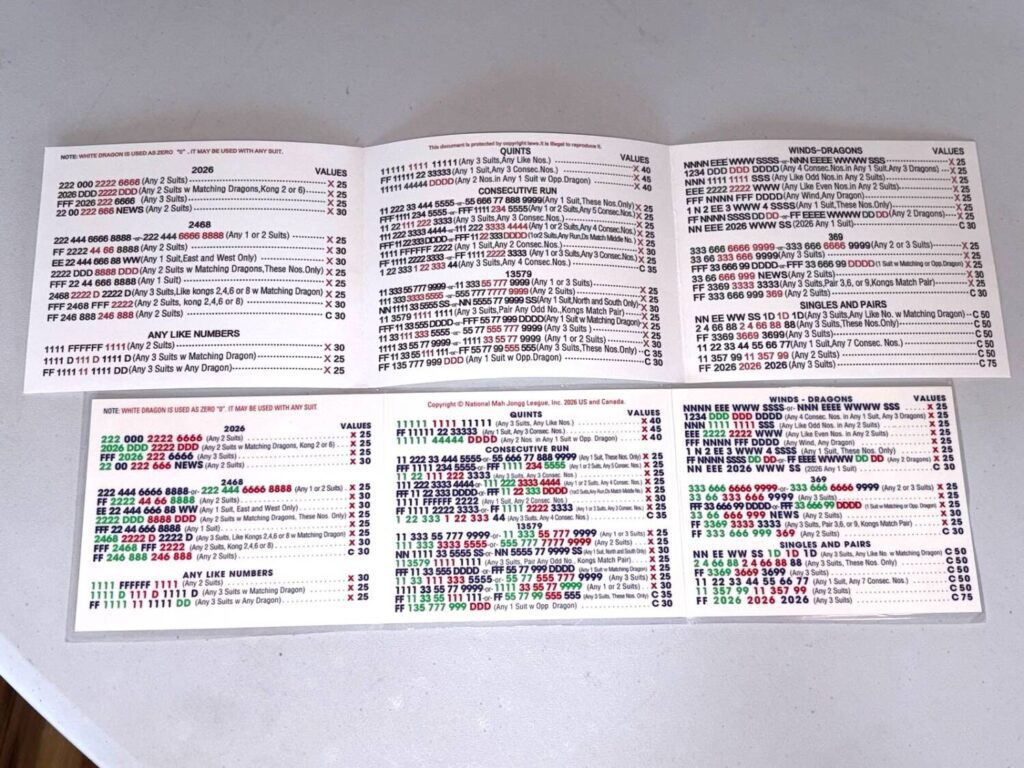 NOTE: WHITE DRAGON IS USED AS ZERO "0". IT MAY BE USED WITH ANY SUIT.
2026 VALUES
222 000 2222 6666 (Any 2 Suits) X 25
2026 DDD 2222 DDD (Any 2 Suits w Matching Dragons,Kong 2 or 6) X 25
FFF 2026 222 6666 (Any 3 Suits) X 25
22 00 222 666 NEWS (Any 2 Suits) X 30
2468
222 444 6666 8888 -or- 222 444 6666 8888 (Any 1 or 2 Suits) X 25
FF 2222 44 66 8888 (Any 2 Suits) X 30
EE 22 444 666 88 WW (Any 1 Suit,East and West Only) X 30
2222 DDD 8888 DDD (Any 2 Suits w Matching Dragons,These Nos.Only) X 25
FFF 22 44 666 8888 (Any 1 Suit) X 25
2468 2222 D 2222 D (Any 3 Suits,Like kongs 2,4,6 or 8 w Matching Dragon) X 25
FFF 2468 FFF 2222 (Any 2 Suits, kong 2,4,6 or 8) X 25
FF 246 888 246 888 (Any 2 Suits) C 30
ANY LIKE NUMBERS
1111 FFFFFF 1111 (Any 2 Suits) X 30
1111 D 111 D 1111 D (Any 3 Suits w Matching Dragon) X 30
FF 1111 11 1111 DD (Any 3 Suits w Any Dragon) X 25
This document is protected by copyright laws.It is illegal to reproduce it.
QUINTS VALUES
11111 1111 11111 (Any 3 Suits,Any Like Nos.) X 40
FF 11111 22 33333 (Any 1 Suit,Any 3 Consec.Nos.) X 45
11111 44444 DDDD (Any 2 Nos.in Any 1 Suit w Opp.Dragon) X 45
CONSECUTIVE RUN
11 222 33 444 5555 -or- 55 666 77 888 9999 (Any 1 Suit,These Nos.Only) X 25
FFF 1111 234 5555 -or- FFF 1111 234 5555 (Any 1 or 2 Suits,Any 5 Consec.Nos.) X 25
11 22 111 222 3333 (Any 3 Suits,Any 3 Consec.Nos.) X 25
111 222 3333 4444 -or- 111 222 3333 4444 (Any 1 or 2 Suits, Any 4 Consec.Nos.) X 25
FFF 11 222 333 DDDD -or- FFF 11 22 333 DDDD (1 or 2 Suits,Any Run,Ds Match Middle No.) X 25
1111 FFFFFF 2222 (Any 1 Suit,Any 2 Consec.Nos.) X 30
FF 1111 2222 3333 -or- FF 1111 2222 3333 (Any 1 or 3 Suits,Any 3 Consec.Nos.) X 25
1 22 333 1 22 333 44 (Any 3 Suits,Any 4 Consec.Nos.) C 35
13579
11 333 55 777 9999 -or- 11 333 55 777 9999 (Any 1 or 3 Suits) X 25
111 333 3333 5555 -or- 555 777 7777 9999 (Any 2 Suits) X 25
NN 1111 33 5555 SS -or- NN 5555 77 9999 SS (Any 1 Suit,North and South Only) X 30
11 3579 1111 1111 (Any 3 Suits,Pair Any Odd No.,Kongs Match Pair) X 30
FFF 11 33 555 DDDD -or- FFF 55 77 999 DDDD (Any 1 Suit w Matching Dragon) X 25
11 33 111 333 5555 -or- 55 77 555 777 9999 (Any 3 Suits) X 25
1111 33 55 77 9999 -or- 1111 33 55 77 9999 (Any 1 or 2 Suits) X 30
FF 11 33 55 111 111 -or- FF 55 77 99 555 555 (Any 3 Suits,These Nos.Only) C 35
FF 135 777 999 DDD (Any 1 Suit w Opp.Dragon) C 30
WINDS-DRAGONS VALUES
NNNN EEE WWW SSSS -or- NNN EEEE WWWW SSS X 25
1234 DDD DDD DDDD (Any 4 Consec.Nos.in Any 1 Suit,Any 3 Dragons) X 25
NNN 1111 1111 SSS (Any Like Odd Nos.in Any 2 Suits) X 25
EEE 2222 2222 WWW (Any Like Even Nos.in Any 2 Suits) X 25
FFF NNNN FFF DDDD (Any Wind,Any Dragon) X 25
1 N 2 EE 3 WWW 4 SSSS (Any 1 Suit,These Nos.Only) X 25
FF NNNN SSSS DD DD -or- FF EEEE WWWW DD DD (Any 2 Dragons) X 25
NN EEE 2026 WWW SS (2026 Any 1 Suit) C 30
369
333 666 6666 9999 -or- 333 666 6666 9999 (Any 2 or 3 Suits) X 25
33 66 333 666 9999 (Any 3 Suits) X 25
FFF 33 666 99 DDDD -or- FFF 33 666 99 DDDD (1 Suit w Matching or Opp.Dragon) X 25
33 66 666 999 NEWS (Any 2 Suits) X 30
FF 3369 3333 3333 (Any 3 Suits,Pair 3,6, or 9,Kongs Match Pair) X 30
FF 333 666 999 369 (Any 2 Suits) C 30
SINGLES AND PAIRS
NN EE WW SS 1D 1D 1D (Any 3 Suits,Any Like No. w Matching Dragon) C 50
2 4 66 88 2 4 66 88 88 (Any 3 Suits,These Nos.Only) C 50
FF 3369 3669 3699 (Any 3 Suits) C 50
11 22 33 44 55 66 77 (Any 1 Suit,Any 7 Consec.Nos.) C 50
11 357 99 11 357 99 (Any 2 Suits) C 50
FF 2026 2026 2026 (Any 3 Suits) C 75
NOTE: WHITE DRAGON IS USED AS ZERO "0". IT MAY BE USED WITH ANY SUIT.
2026 VALUES
222 000 2222 6666 (Any 2 Suits) X 25
2026 DDD 2222 DDD (Any 2 Suits w Matching Dragons, Kong 2 or 6) X 25
FFF 2026 222 6666 (Any 3 Suits) X 25
22 00 222 666 NEWS (Any 2 Suits) X 30
2468
222 444 6666 8888 -or- 222 444 6666 8888 (Any 1 or 2 Suits) X 25
FF 2222 44 66 8888 (Any 2 Suits) X 30
EE 22 444 666 88 WW (Any 1 Suit, East and West Only) X 30
2222 DDD 8888 DDD (Any 2 Suits w Matching Dragons, These Nos. Only) X 25
FFF 22 44 666 8888 (Any 1 Suit) X 25
2468 2222 D 2222 D (Any 3 Suits, Like Kongs 2,4,6 or 8 w Matching Dragon) X 25
FFF 2468 FFF 2222 (Any 2 Suits, Kong 2,4,6 or 8) X 25
FF 246 888 246 888 (Any 2 Suits) C 30
ANY LIKE NUMBERS
1111 FFFFFF 1111 (Any 2 Suits) X 30
1111 D 111 D 1111 D (Any 3 Suits w Matching Dragon) X 30
FF 1111 11 1111 DD (Any 3 Suits w Any Dragon) X 25
Copyright © National Mah Jongg League, Inc. 2026 US and Canada.
QUINTS VALUES
11111 1111 11111 (Any 3 Suits, Any Like Nos.) X 40
FF 11111 22 33333 (Any 1 Suit, Any 3 Consec. Nos.) X 45
11111 44444 DDDD (Any 2 Nos. in Any 1 Suit w Opp. Dragon) X 45
CONSECUTIVE RUN
11 222 33 444 5555 -or- 55 666 77 888 9999 (Any 1 Suit, These Nos. Only) X 25
FFF 1111 234 5555 -or- FFF 1111 234 5555 (Any 1 or 2 Suits, Any 5 Consec. Nos.) X 25
11 22 111 222 3333 (Any 3 Suits, Any 3 Consec. Nos.) X 25
111 222 3333 4444 -or- 111 222 3333 4444 (Any 1 or 2 Suits, Any 4 Consec. Nos.) X 25
FFF 11 22 333 DDDD -or- FFF 11 22 333 DDDD (1 or 3 Suits, Any Run, Ds Match Middle No.) X 25
1111 FFFFFF 2222 (Any 1 Suit, Any 2 Consec. Nos.) X 30
FF 1111 2222 3333 -or- FF 1111 2222 3333 (Any 1 or 3 Suits, Any 3 Consec. Nos.) X 25
1 22 333 1 22 333 44 (Any 3 Suits, Any 4 Consec. Nos.) C 35
13579
11 333 55 777 9999 -or- 11 333 55 777 9999 (Any 1 or 3 Suits) X 25
111 333 3333 5555 -or- 555 777 7777 9999 (Any 2 Suits) X 25
NN 1111 33 5555 SS -or- NN 5555 77 9999 SS (Any 1 Suit, North and South Only) X 30
113579 1111 1111 (Any 3 Suits, Pair Any Odd No., Kongs Match Pair) X 30
FFF 11 33 555 DDDD -or- FFF 55 77 999 DDDD (Any 1 Suit w Matching Dragon) X 25
11 33 111 333 5555 -or- 55 77 555 777 9999 (Any 3 Suits) X 25
1111 33 55 77 9999 -or- 1111 33 55 77 9999 (Any 1 or 2 Suits) X 30
FF 11 33 55 111 111 -or- FF 55 77 99 555 555 (Any 3 Suits, These Nos. Only) C 35
FF 135 777 999 DDD (Any 1 Suit w Opp. Dragon) C 30
WINDS - DRAGONS VALUES
NNNN EEE WWW SSSS -or- NNN EEEE WWWW SSS X 25
1234 DDD DDD DDDD (Any 4 Consec. Nos. in Any 1 Suit, Any 3 Dragons) X 25
NNN 1111 1111 SSS (Any Like Odd Nos. in Any 2 Suits) X 25
EEE 2222 2222 WWW (Any Like Even Nos. in Any 2 Suits) X 25
FFF NNNN FFF DDDD (Any Wind, Any Dragon) X 25
1 N 2 EE 3 WWW 4 SSSS (Any 1 Suit, These Nos. Only) X 25
FF NNNN SSSS DD DD -or- FF EEEE WWWW DD DD (Any 2 Dragons) X 25
NN EEE 2026 WWW SS (2026 Any 1 Suit) C 30
369
333 666 6666 9999 -or- 333 666 6666 9999 (Any 2 or 3 Suits) X 25
33 66 333 666 9999 (Any 3 Suits) X 25
FFF 33 666 99 DDDD -or- FFF 33 666 99 DDDD (1 Suit w Matching or Opp. Dragon) X 25
33 66 666 999 NEWS (Any 2 Suits) X 30
FF 3369 3333 3333 (Any 3 Suits, Pair 3,6, or 9, Kongs Match Pair) X 30
FF 333 666 999 369 (Any 2 Suits) C 30
SINGLES AND PAIRS
NN EE WW SS 1D 1D 1D (Any 3 Suits, Any Like No. w Matching Dragon) C 50
2 4 66 88 2 4 66 88 88 (Any 3 Suits, These Nos. Only) C 50
FF 3369 3669 3699 (Any 3 Suits) C 50
11 22 33 44 55 66 77 (Any 1 Suit, Any 7 Consec. Nos.) C 50
11 357 99 11 357 99 (Any 2 Suits) C 50
FF 2026 2026 2026 (Any 3 Suits) C 75